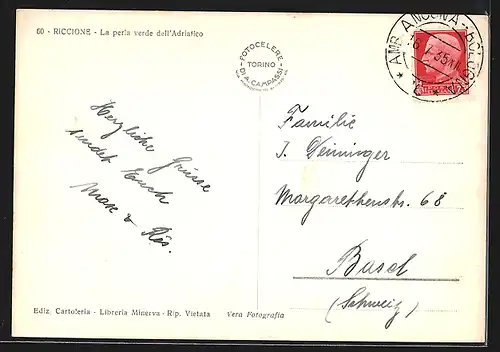 60 - RICCIONE - La perla verde dell'Adriatico
FOTOCELERE
TORINO
DI A. CAMPASSI
AMB. ANCONA - BOLOGNA
Herzliche Grüsse
sendet Euch
Max & Rös.
Familie
J. Denninger
Margarethenstr. 68
Basel
(Schweiz)
Ediz. Cartoleria - Libreria Minerva - Rip. Vietata
Vera Fotografia